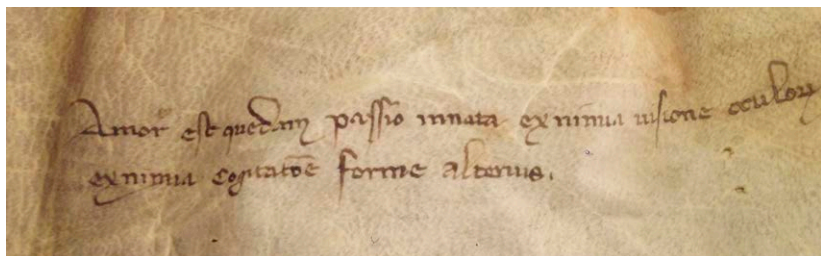 Amor est quedam passio innata ex nimia uisione oculoꝝ
ex nimia cogitatōē forme alterius.